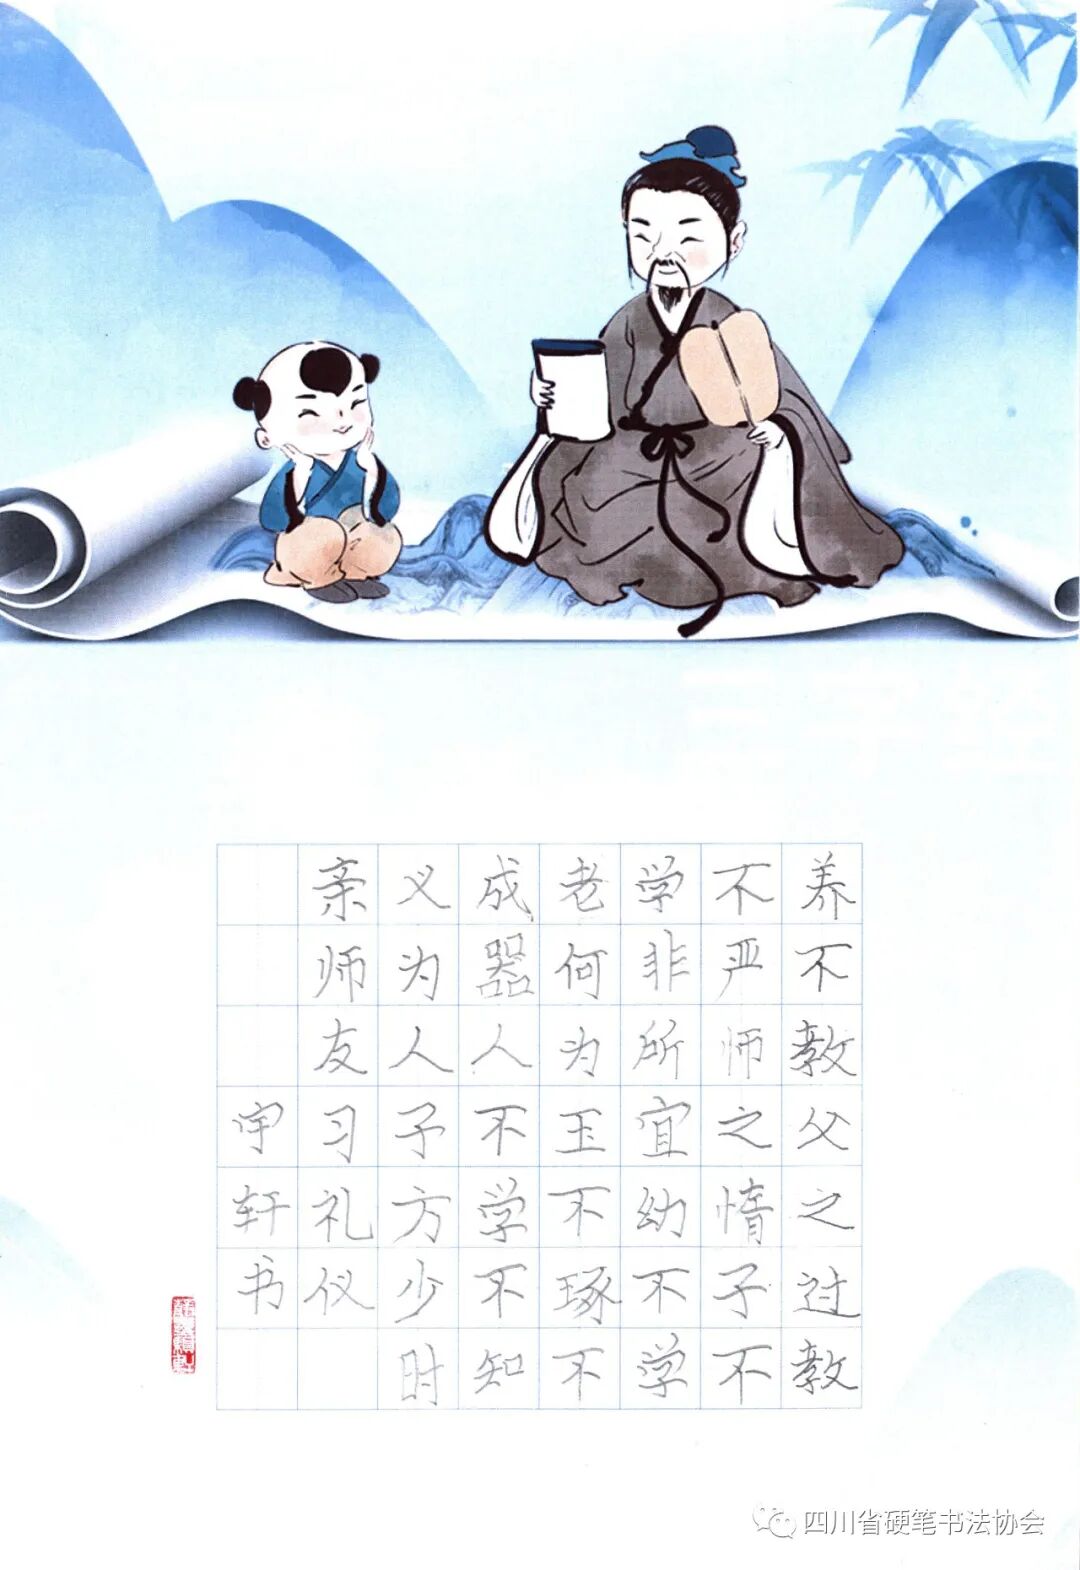 养不教父之过教
不严师之惰子不
学非所宜幼不学
老何为玉不琢不
成器人不学不知
义为人子方少时
亲师友习礼仪
宇轩书
四川省硬笔书法协会